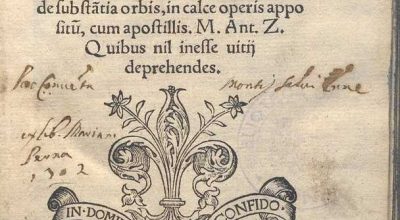 de substãtia orbis, in calce operis appo
sitũ, cum apostillis. M. Ant. Z.
Quibus nil inesse uitij
deprehendes.
ex lib. Mariani
IN DOMI CONFIDO